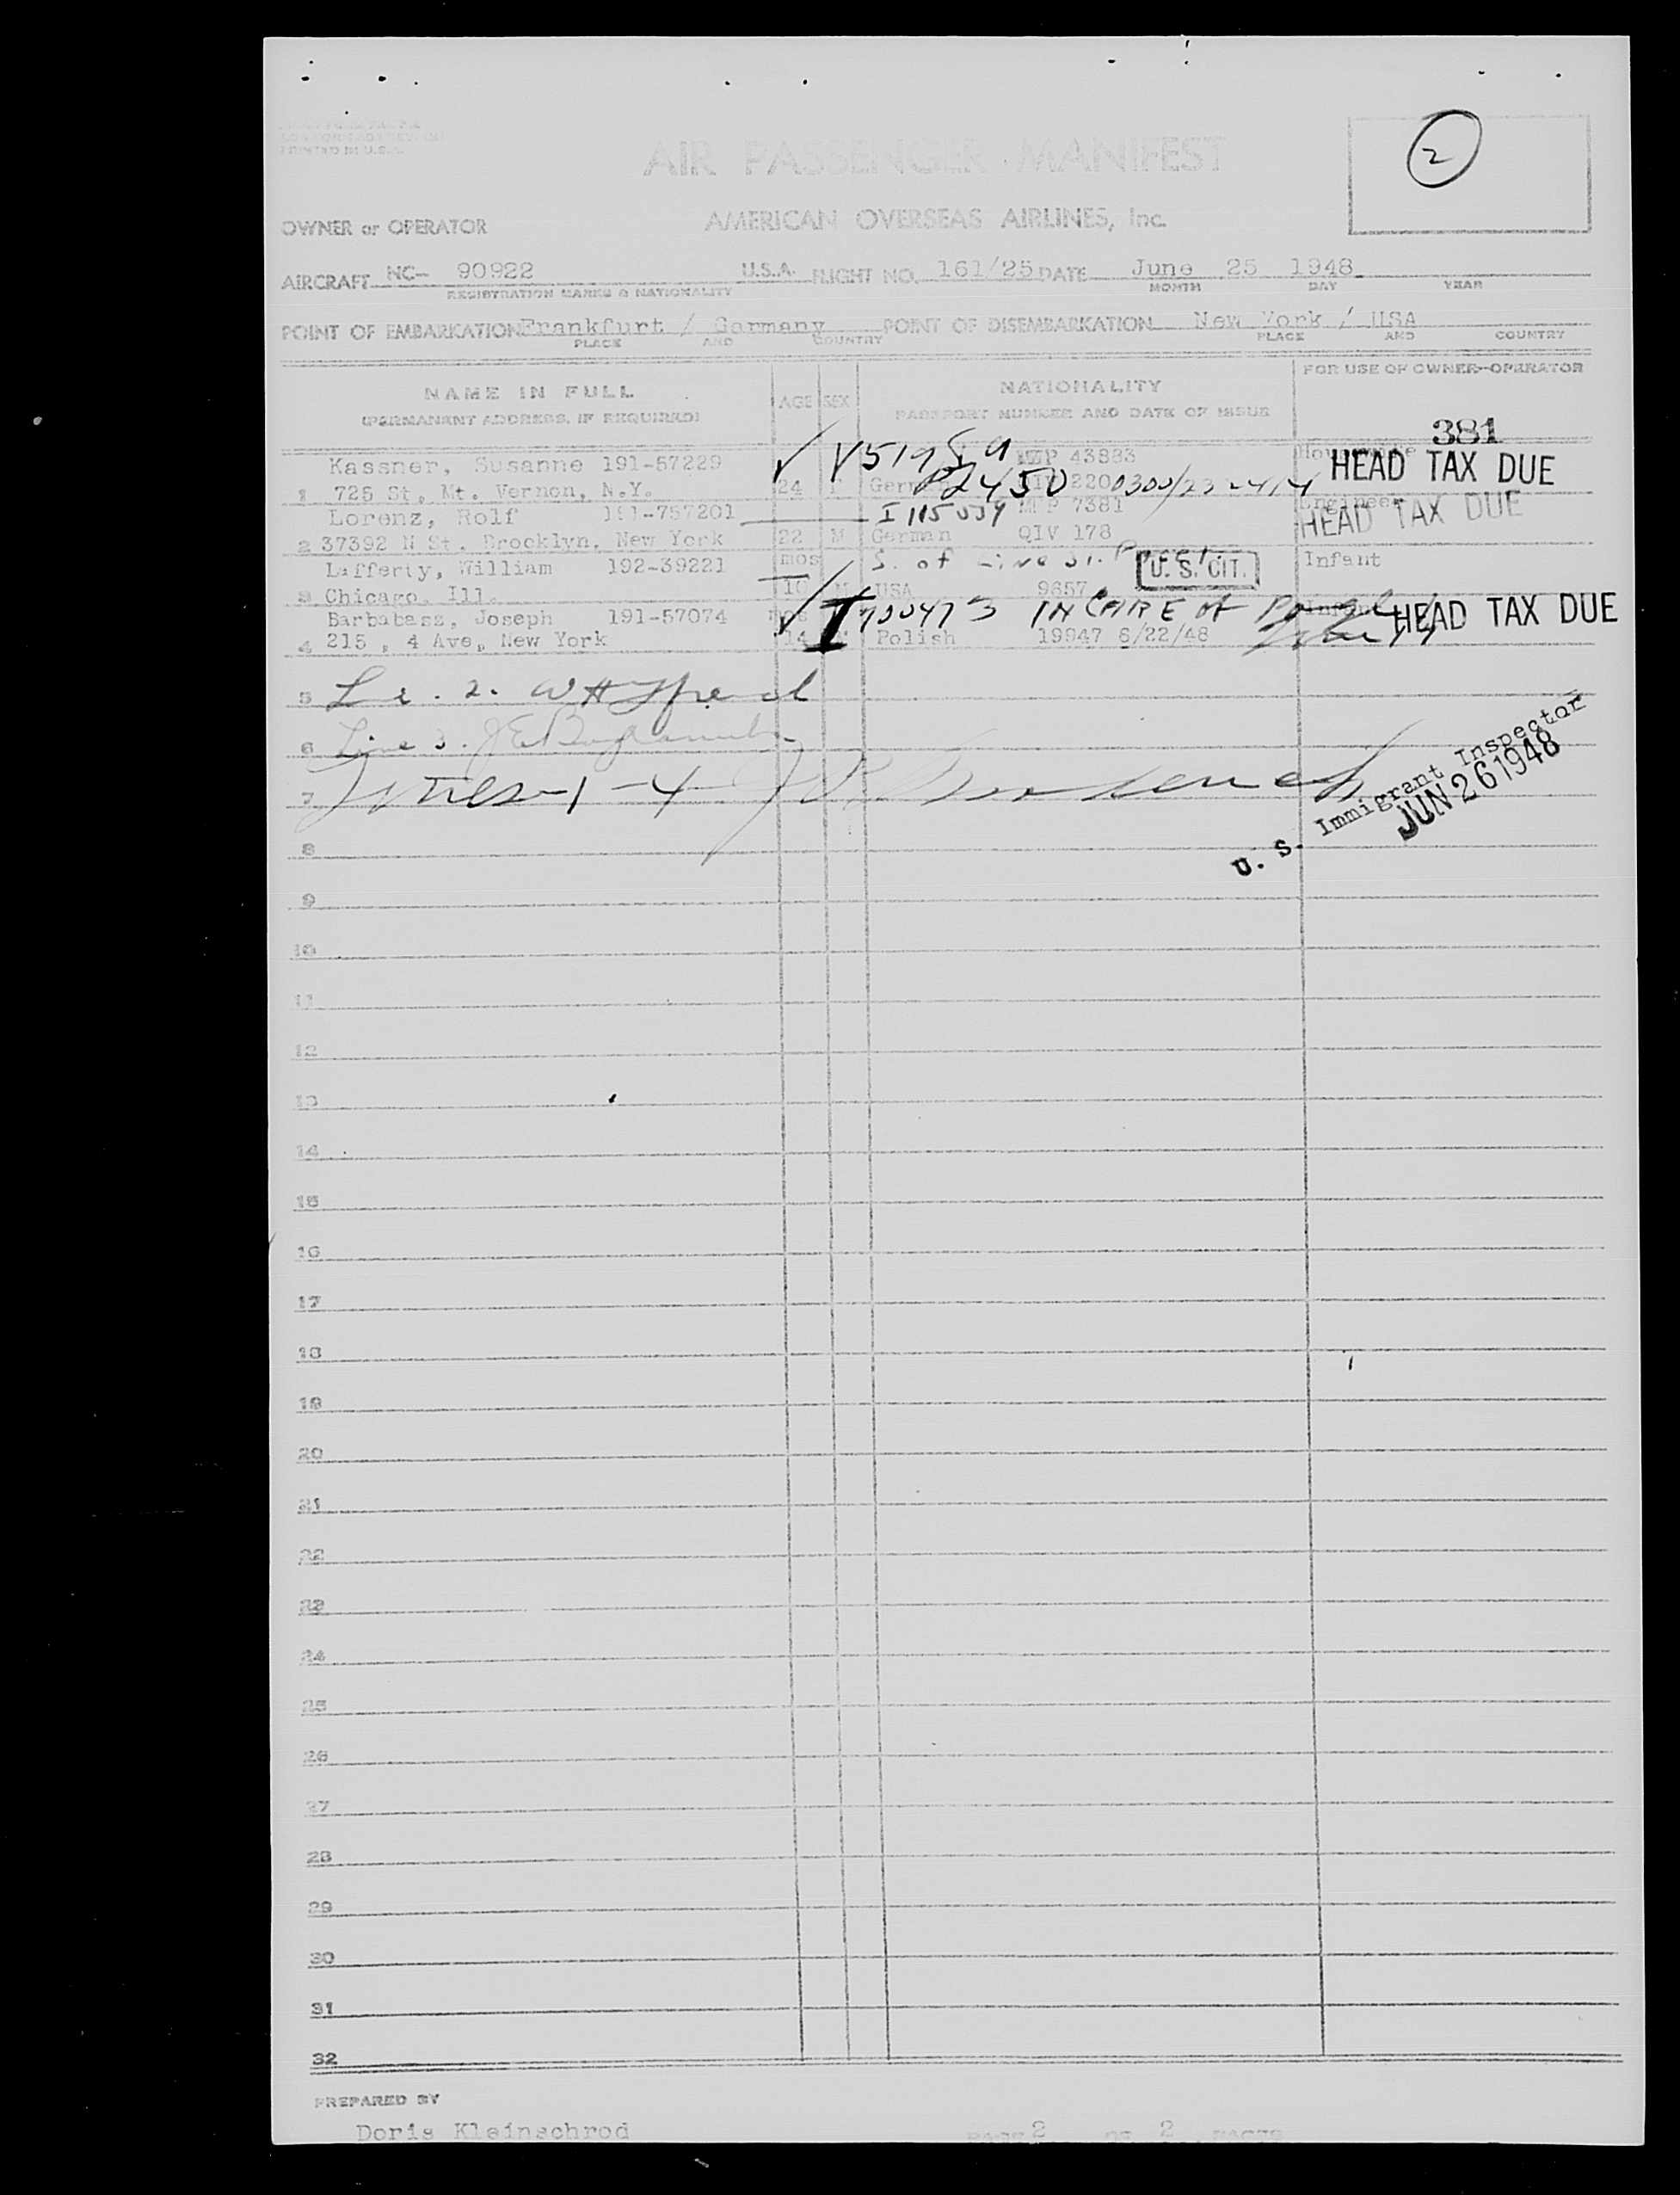 PRINTED IN U.S.A.
2
AIR PASSENGER MANIFEST
OWNER or OPERATOR AMERICAN OVERSEAS AIRLINES, Inc.
AIRCRAFT NC- 90922 U.S.A. FLIGHT NO. 161/25 DATE June 25 1948
REGISTRATION MARKS & NATIONALITY MONTH DAY YEAR
POINT OF EMBARKATION Frankfurt / Germany POINT OF DISEMBARKATION New York / USA
PLACE AND COUNTRY PLACE AND COUNTRY
NAME IN FULL AGE SEX NATIONALITY FOR USE OF OWNER-OPERATOR
(PERMANENT ADDRESS, IF REQUIRED) PASSPORT NUMBER AND DATE OF ISSUE
381
Kassner, Susanne 191-57229 43883 HEAD TAX DUE
1 725 St, Mt. Vernon, N.Y. 24 F
Lorenz, Rolf 7381 Engineer HEAD TAX DUE
2 37392 N St. Brooklyn, New York 22 M German QIV 178
Lafferty, William 192-39221 mos S. of U. S. CIT. Infant
3 Chicago, Ill. 10 USA 9657
Barbabass, Joseph 191-57074 IN CARE OF Infant HEAD TAX DUE
4 215 , 4 Ave, New York 14 Polish 19947 6/22/48
5
6 Line 3.
7 Lines 1-4
U. S. Immigrant Inspector
JUN 26 1948
8
9
10
11
12
13
14
15
16
17
18
19
20
21
22
23
24
25
26
27
28
29
30
31
32
PREPARED BY
Doris Kleinschrod PAGE 2 OF 2 PAGES